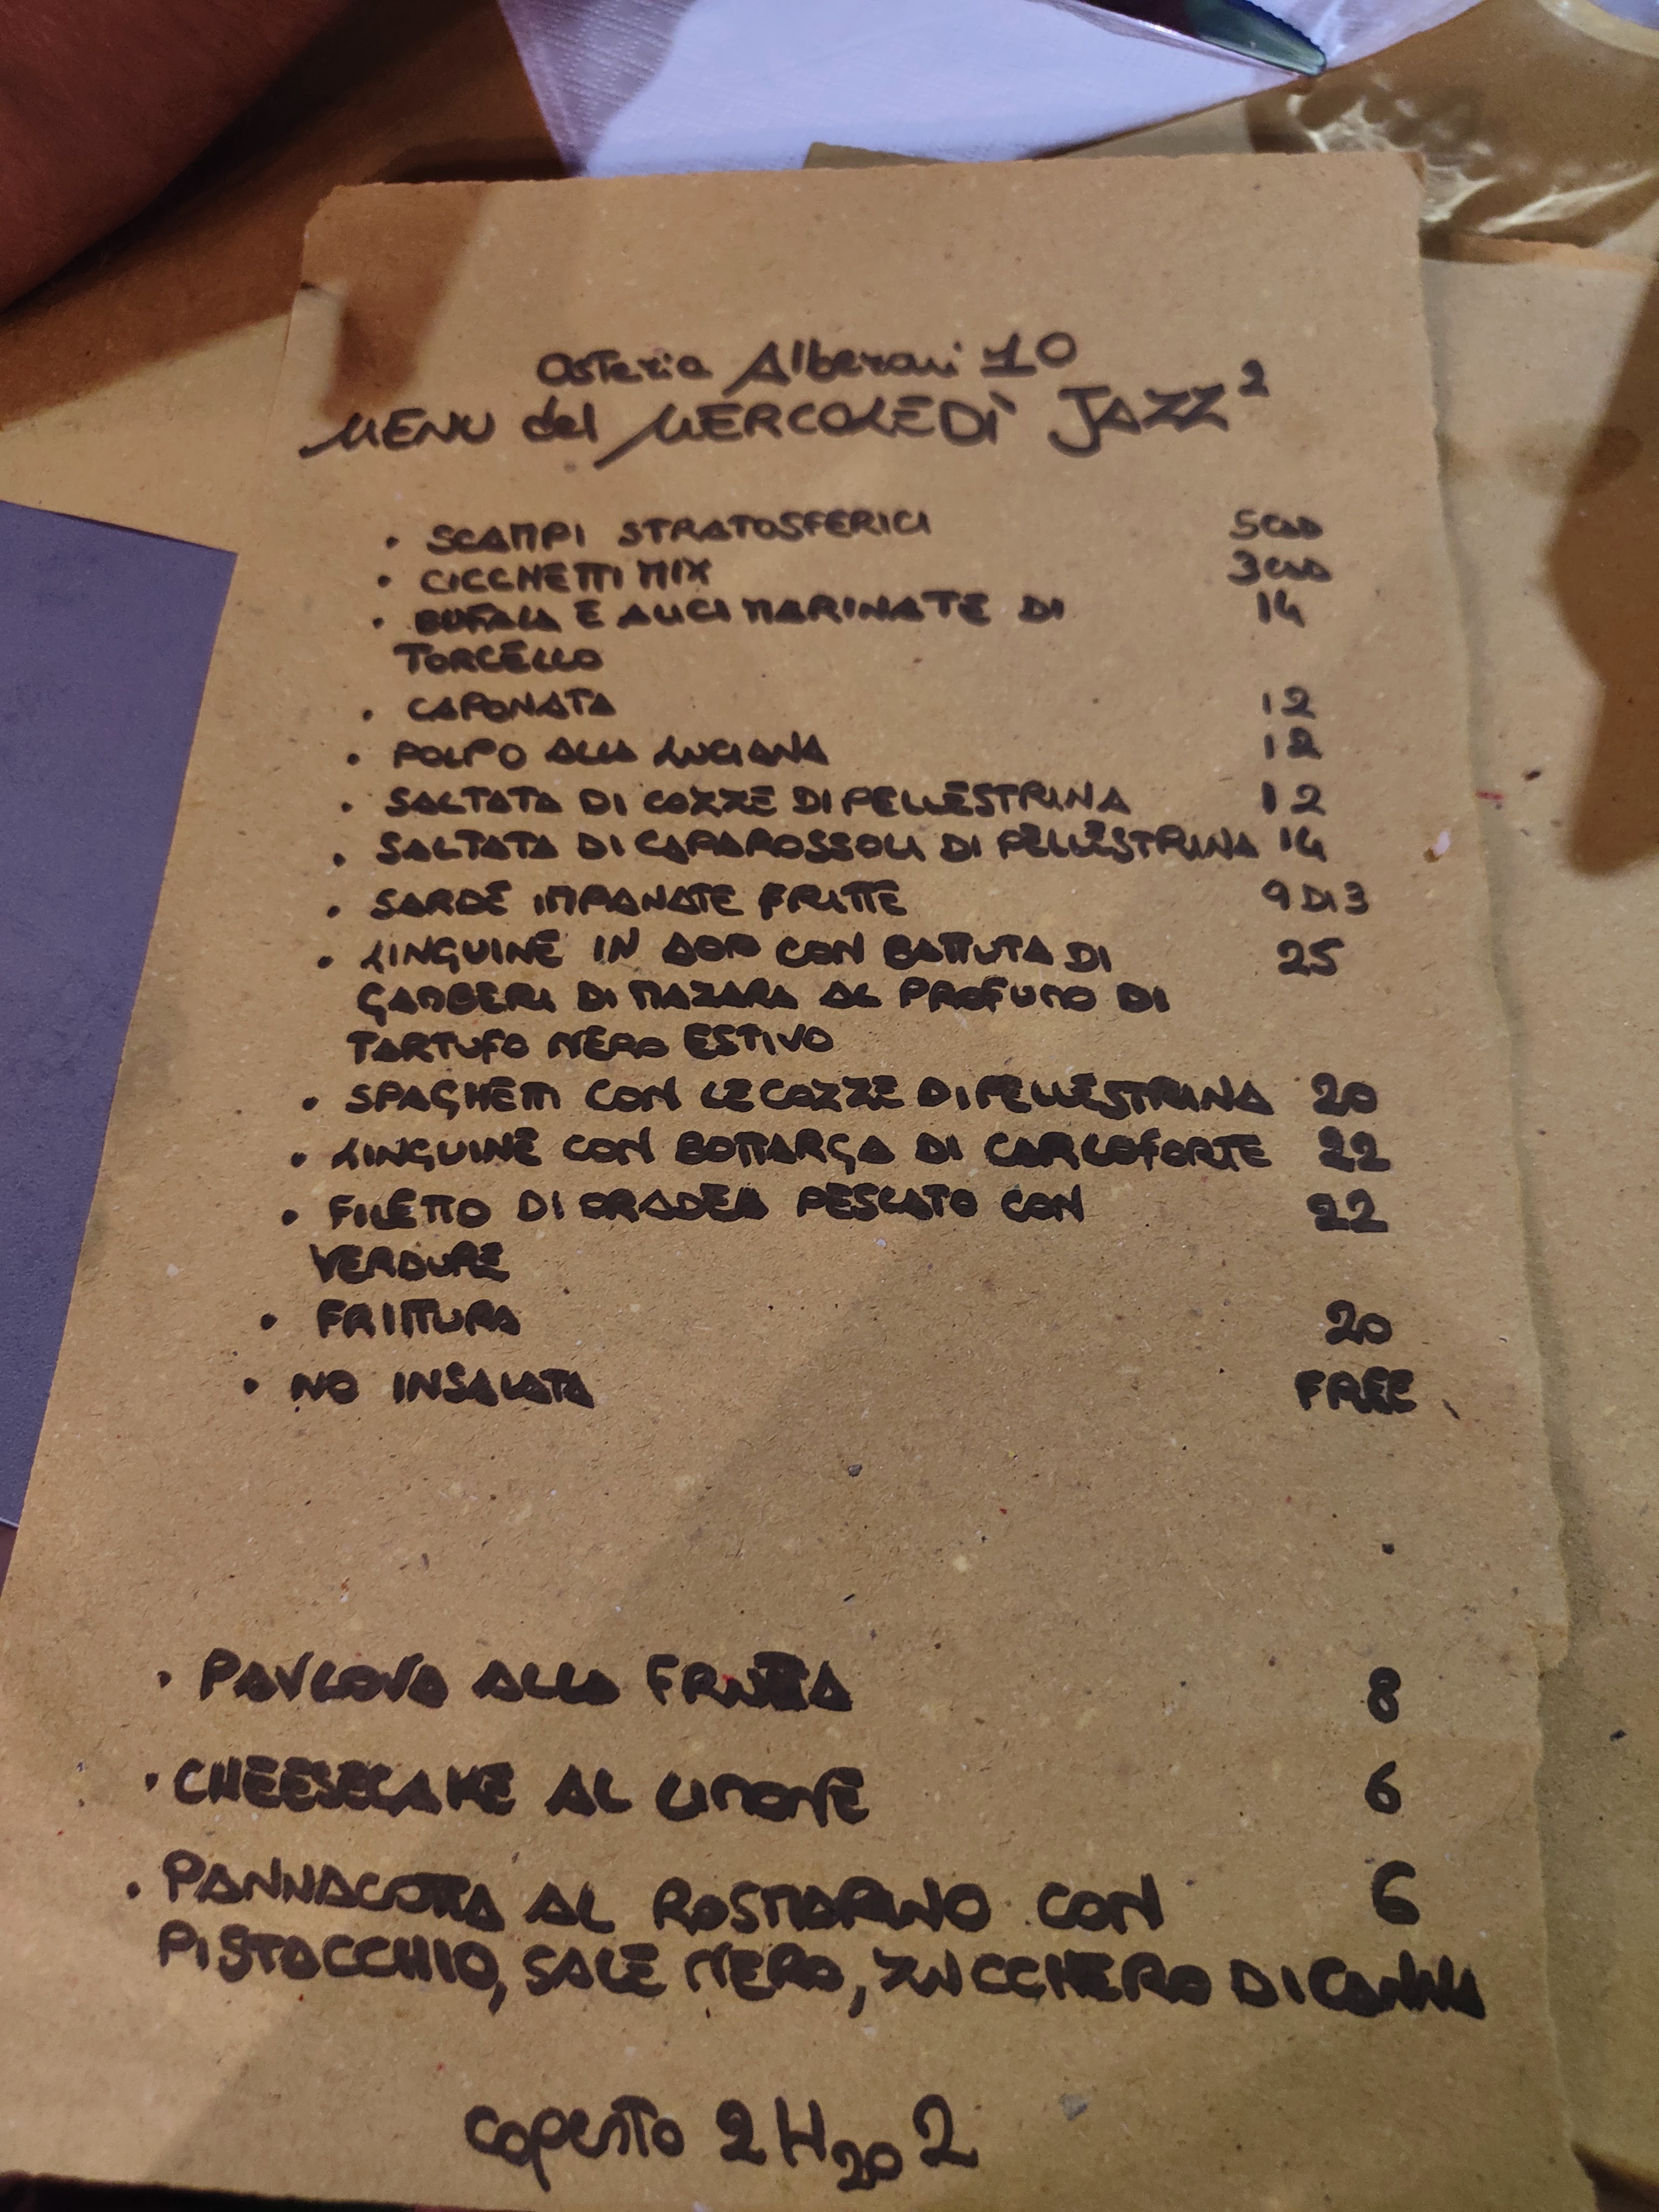 Osteria Alberoni 10
MENU del MERCOLEDÌ JAZZ²
• SCAMPI STRATOSFERICI 5 CAD
• CICCHETTI MIX 3 CAD
• BUFALA E ALICI MARINATE DI 14
TORCELLO
• CAPONATA 12
• POLPO ALLA LUCIANA 12
• SALTATA DI COZZE DI PELLESTRINA 12
• SALTATA DI CAPAROSSOLI DI PELLESTRINA 14
• SARDE IMPANATE FRITTE 9 DI 3
• LINGUINE IN AOP CON BATTUTA DI 25
GAMBERI DI MAZARA AL PROFUMO DI
TARTUFO NERO ESTIVO
• SPAGHETTI CON LE COZZE DI PELLESTRINA 20
• LINGUINE CON BOTTARGA DI CARLOFORTE 22
• FILETTO DI ORADEA PESCATO CON 22
VERDURE
• FRITTURA 20
• NO INSALATA FREE
• PAVLOVA ALLA FRUTTA 8
• CHEESECAKE AL LIMONE 6
• PANNACOTTA AL ROSMARINO CON 6
PISTACCHIO, SALE NERO, ZUCCHERO DI CANNA
coperto 2 H₂₀ 2